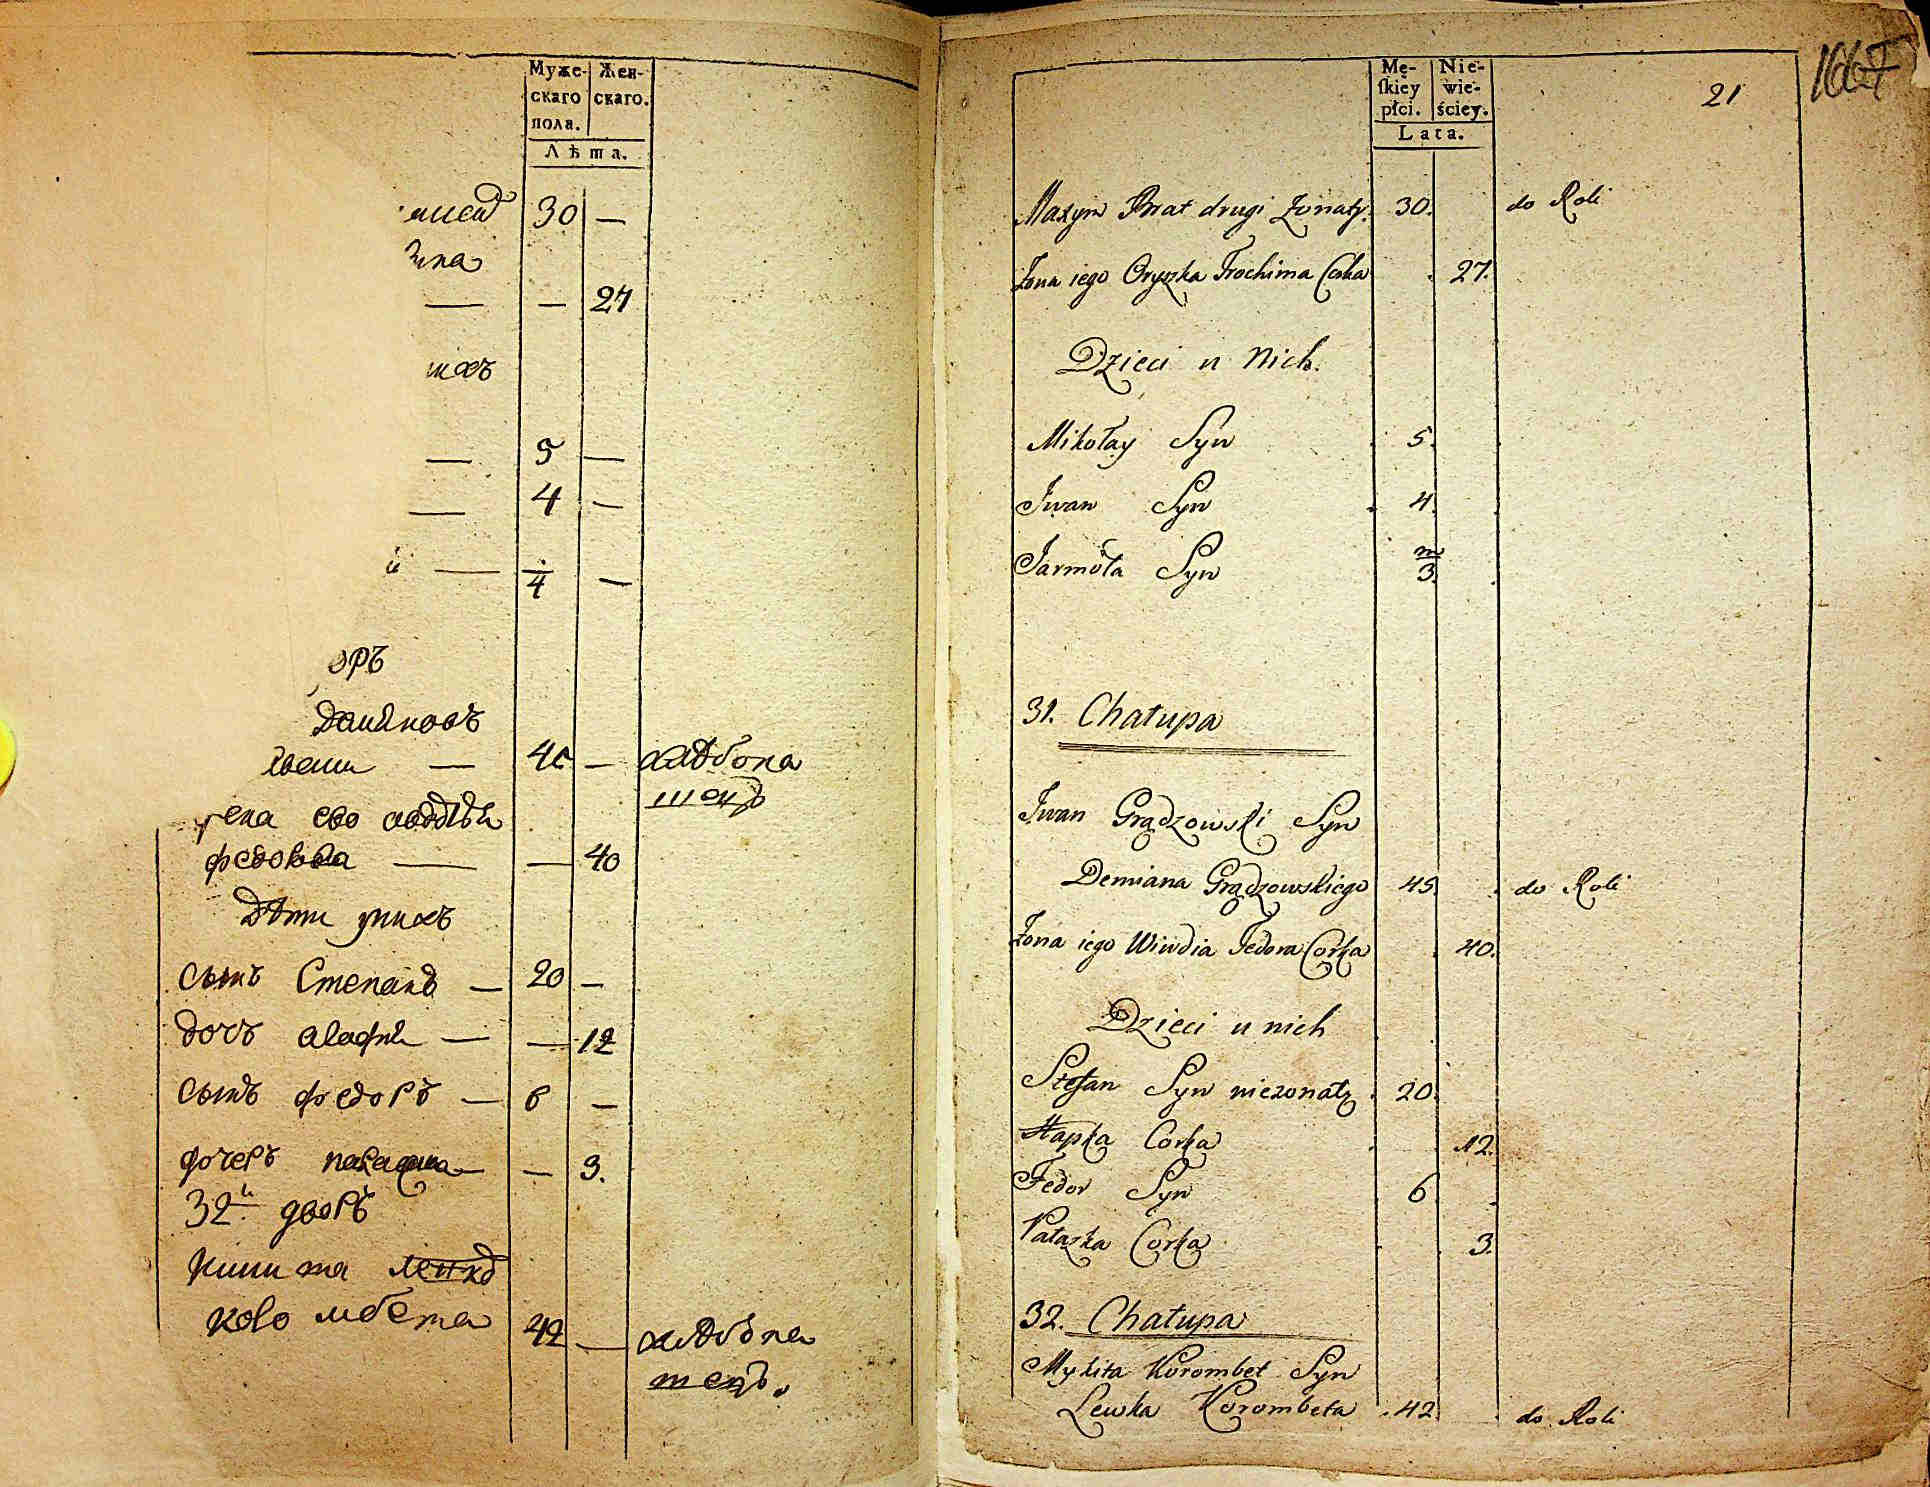 Муже- Жен-
скаго скаго.
пола.
Лѣта.
30 —
— — 27
нихъ
— 5 —
— 4 —
й — 4 —
оръ
— 45 — хлѣбопа
шецъ
жена ево
федорова — — 40
дѣти унихъ
сынъ Степанъ — 20 —
дочъ агафия — — 12
сынъ федоръ — 6 —
дочеръ — — 3.
32й дворъ
Никита
42 — хлѣбопа
шецъ.
1667
21
Mę- Nie-
skiey wie-
płci. ściey.
Lata.
Maxym Brat drugi żonaty. 30. do Roli
Żona iego Oryszka Trochima Corka 27.
Dzieci u Nich.
Mikołay Syn 5.
Iwan Syn 4.
Jarmoła Syn m/3.
31. Chałupa
Iwan Grądzowski Syn
Demiana Grądzowskiego 45. do Roli
Żona iego Wiwdia Fedora Corka 40.
Dzieci u nich
Stefan Syn nieżonaty 20.
Hapka Corka 12.
Fedor Syn 6
Pałażka Corka 3.
32. Chałupa
Mykita Korombet Syn
Lewka Korombeta 42. do Roli